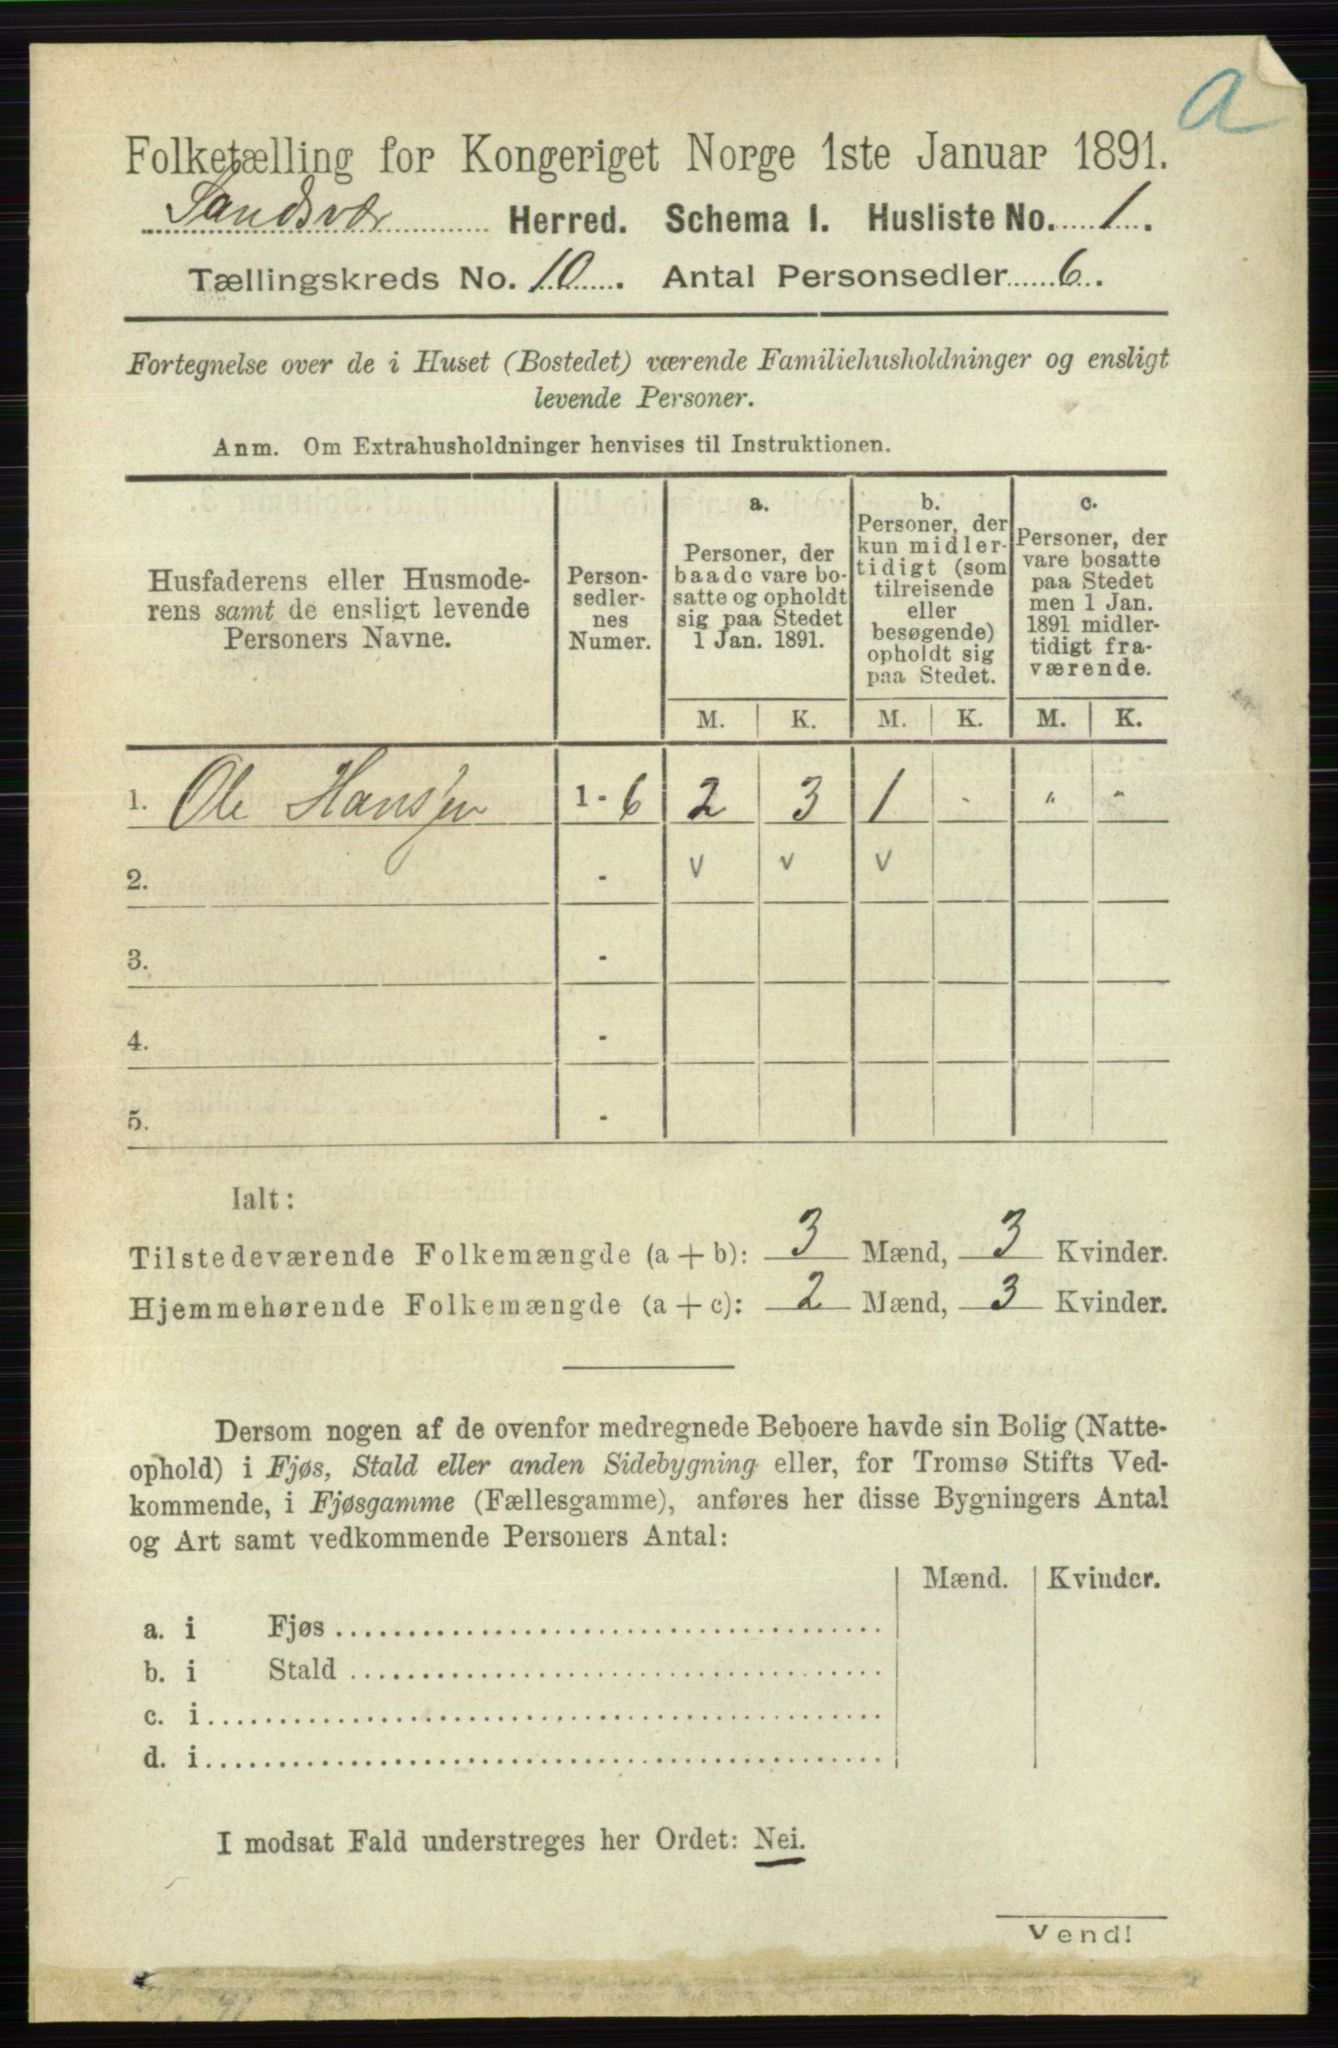 a
Folketælling for Kongeriget Norge 1ste Januar 1891.
Sandsvær Herred. Schema I. Husliste No. 1.
Tællingskreds No. 10. Antal Personsedler 6.
Fortegnelse over de i Huset (Bostedet) værende Familiehusholdninger og ensligt
levende Personer.
Anm. Om Extrahusholdninger henvises til Instruktionen.
Husfaderens eller Husmode-
rens samt de ensligt levende
Personers Navne.
Person-
sedler-
nes
Numer.
a.
Personer, der
baade vare bo-
satte og opholdt
sig paa Stedet
1 Jan. 1891.
b.
Personer, der
kun midler-
tidigt (som
tilreisende
eller
besøgende)
opholdt sig
paa Stedet.
c.
Personer, der
vare bosatte
paa Stedet
men 1 Jan.
1891 midler-
tidigt fra-
værende.
M. K. M. K. M. K.
1. Ole Hansen 1 - 6 2 3 1 - " "
2. - v v v
3. -
4. -
5. -
Ialt:
Tilstedeværende Folkemængde (a + b): 3 Mænd, 3 Kvinder.
Hjemmehørende Folkemængde (a + c): 2 Mænd, 3 Kvinder.
Dersom nogen af de ovenfor medregnede Beboere havde sin Bolig (Natte-
ophold) i Fjøs, Stald eller anden Sidebygning eller, for Tromsø Stifts Ved-
kommende, i Fjøsgamme (Fællesgamme), anføres her disse Bygningers Antal
og Art samt vedkommende Personers Antal:
Mænd. Kvinder.
a. i Fjøs
b. i Stald
c. i
d. i
I modsat Fald understreges her Ordet: Nei.
Vend!